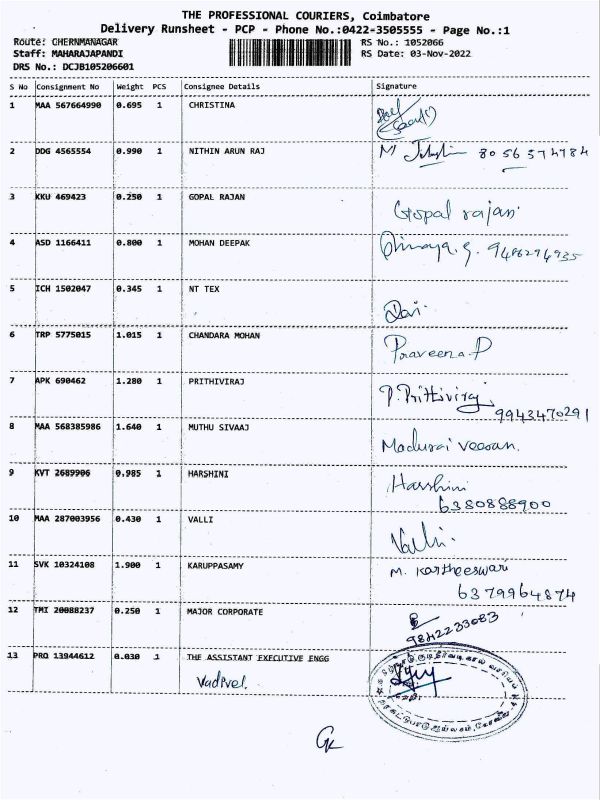 THE PROFESSIONAL COURIERS, Coimbatore
Delivery Runsheet - PCP - Phone No.:0422-3505555 - Page No.:1
Route: CHERNMANAGAR RS No.: 1052066
Staff: MAHARAJAPANDI RS Date: 03-Nov-2022
DRS No.: DCJB105206601
S No Consignment No Weight PCS Consignee Details Signature
1 MAA 567664990 0.695 1 CHRISTINA
2 DDG 4565554 0.990 1 NITHIN ARUN RAJ 8056574784
3 KKU 469423 0.250 1 GOPAL RAJAN Gopal rajan
4 ASD 1166411 0.800 1 MOHAN DEEPAK 9486294935
5 ICH 1502047 0.345 1 NT TEX
6 TRP 5775015 1.015 1 CHANDARA MOHAN Praveena.P
7 APK 690462 1.280 1 PRITHIVIRAJ P.Prithiviraj
9943470291
8 MAA 568385986 1.640 1 MUTHU SIVAAJ Madurai veeran.
9 KVT 2689906 0.985 1 HARSHINI Harshini
6380888900
10 MAA 287003956 0.430 1 VALLI Valli.
11 SVK 10324108 1.900 1 KARUPPASAMY M. Kartheeswari
6379964874
12 TMI 20088237 0.250 1 MAJOR CORPORATE
9842233083
13 PRQ 13944612 0.030 1 THE ASSISTANT EXECUTIVE ENGG
Vadivel.